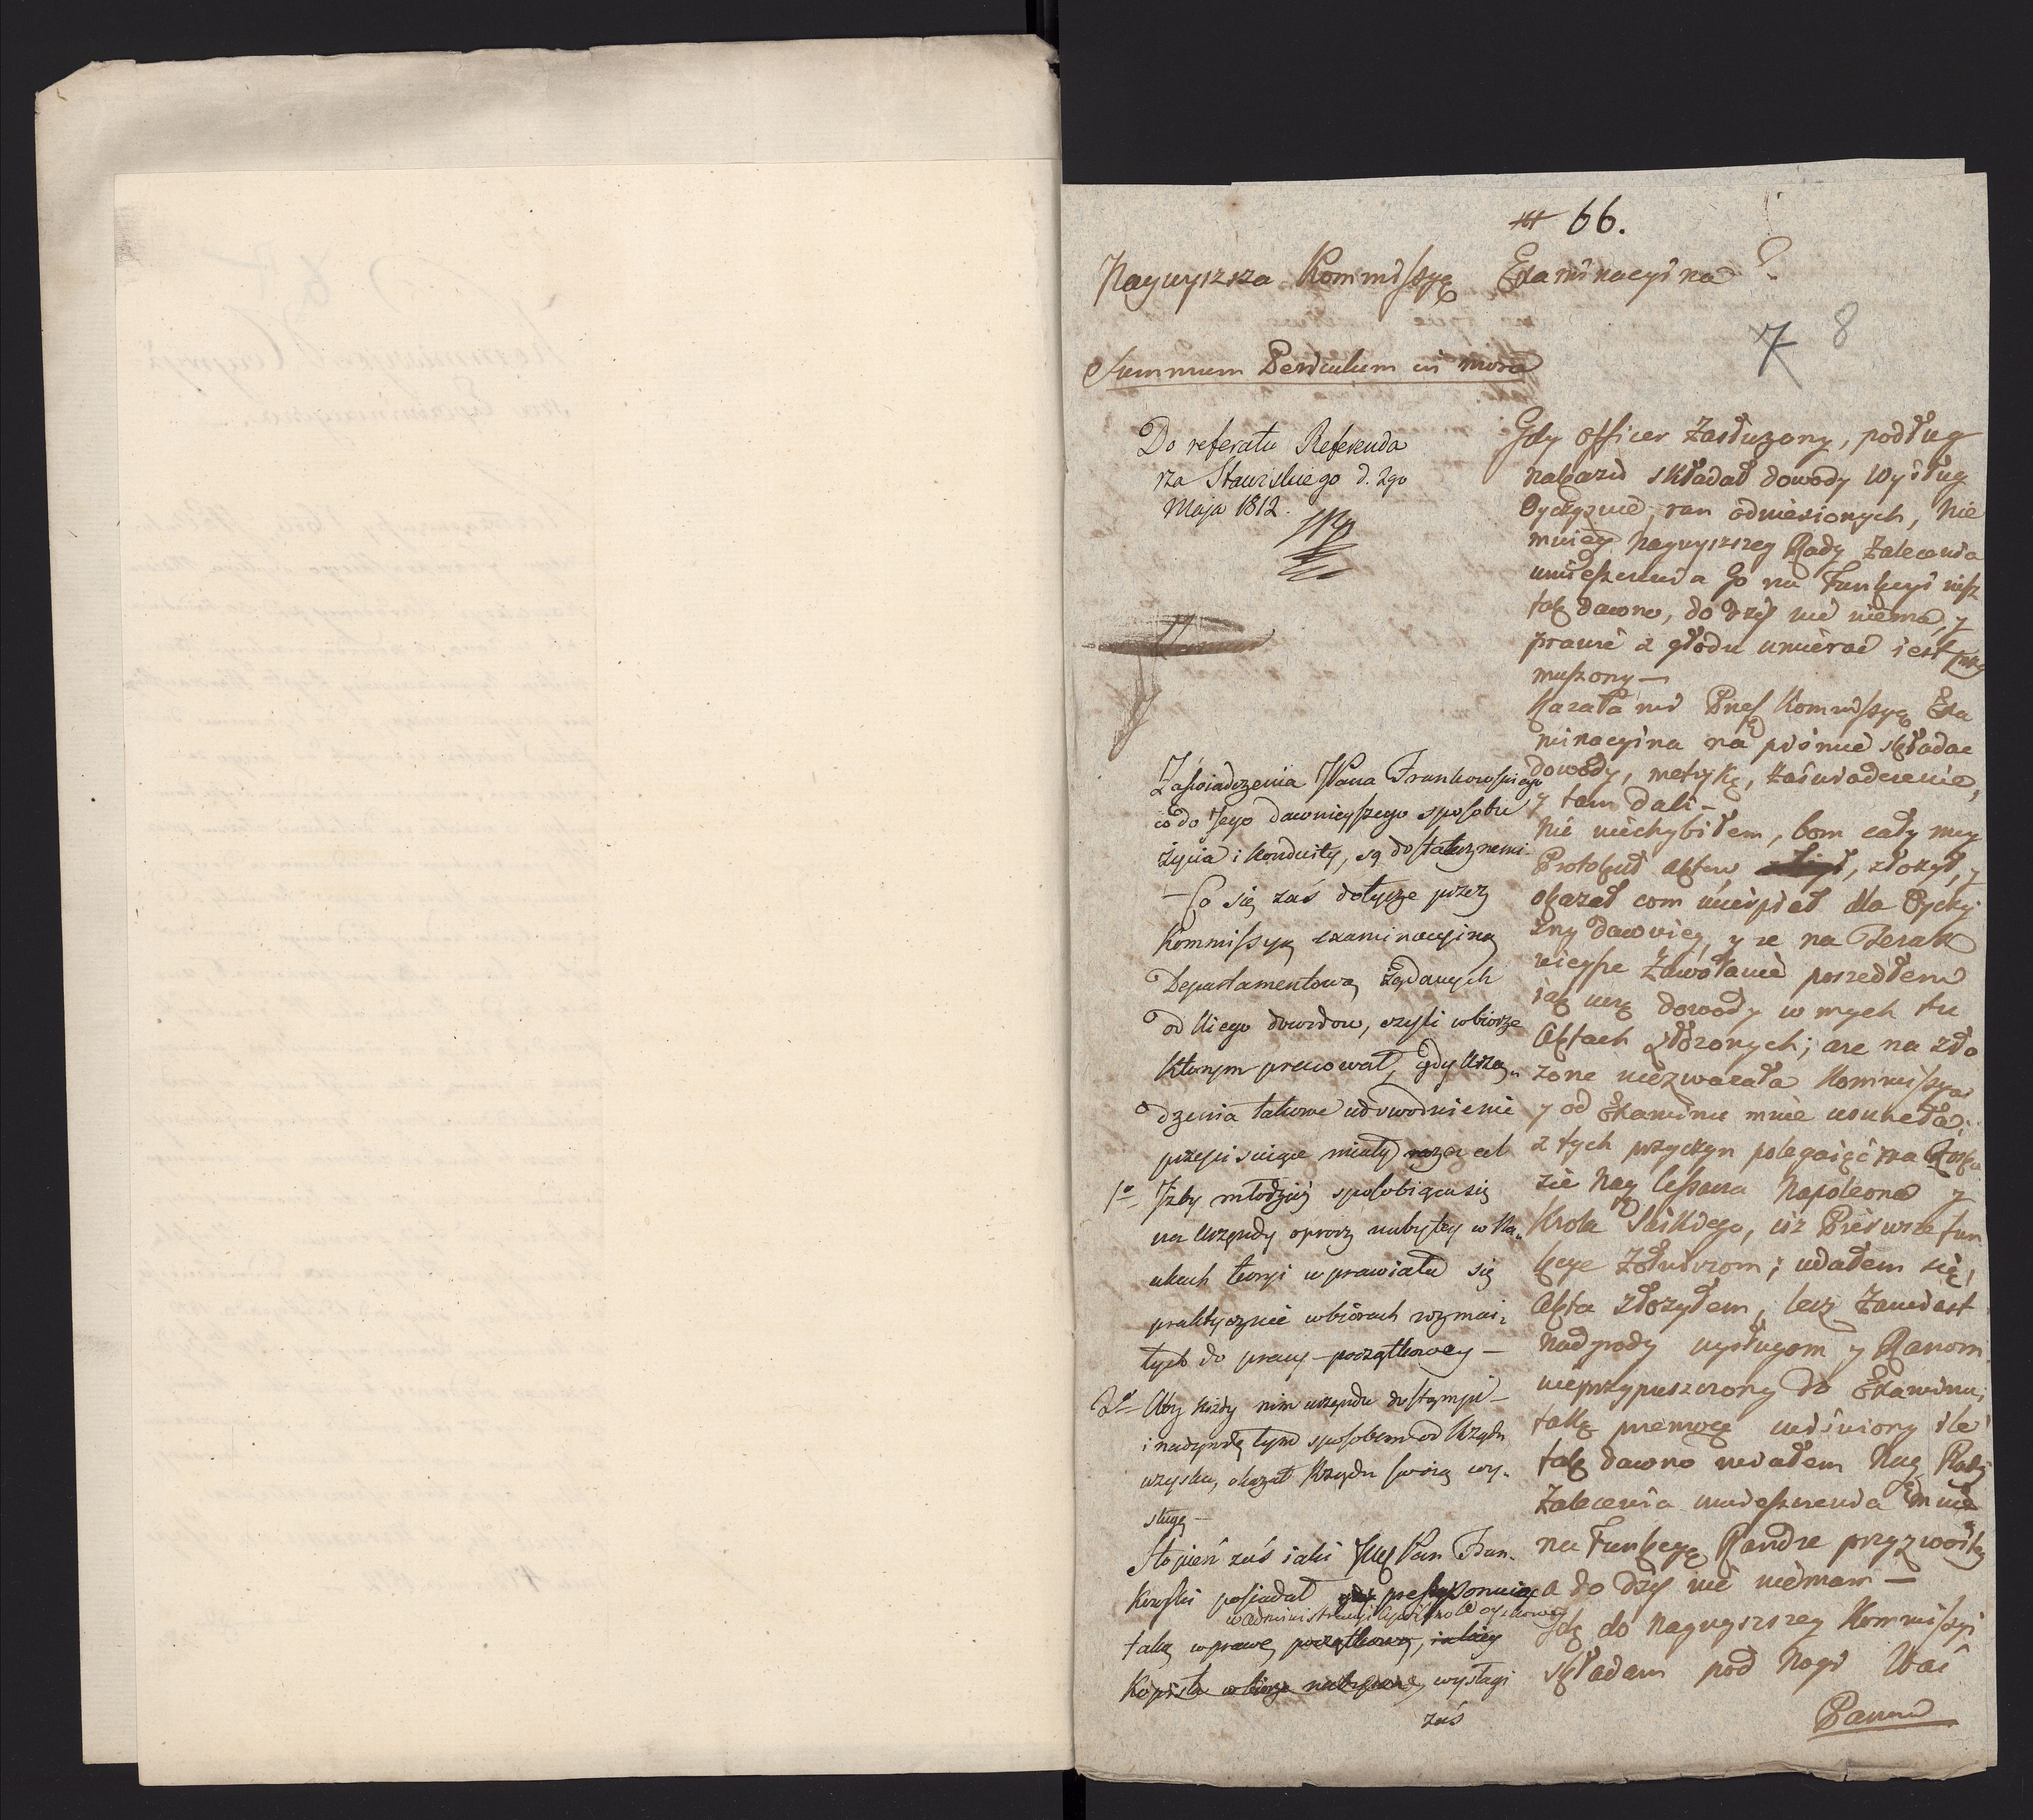 66.
Naywyższa Kommissyę Examinacyina
7 8
Summum Periculum in mora
Do referatu Referenda
rza Stawiskiego d. 2go
Maja 1812.
Zaświadczenia JPana Frankowskiego
co do Jego dawnieyszego sposobu
życia i konduity, są dostatecznemi
— Co się zaś dotycze przez
Kommissyą examinacyiną
Departamentową żądanych
od niego dowodow, czyli w biorze
ktorym pracował, gdy Urzą„
dzenia takowe udowodnienie
przepisuiące miały na cel
1o Iżby młodzież sposobiąca się
na Urzędy oprocz nabytey w Na„
ukach teoryi wprawiała się
praktycznie w biórach rozmai„
tych do pracy początkowey —
2o Aby każdy nim urzędu dostąpi —
i nadgrodę tym sposobem od Rządu
uzyska, okazał Rządu swoią wy„
sługę —
Stopień zaś iaki JW Pan Fran„
kowski posiadał
w administracyi
taką wprawę początkową,
Kopista w biorze wysługi
zaś
Gdy officer Zasłużony, podług
nakazu składał dowody Wysług
Oyczyznie, ran odniesionych, Nie
mniey Naywyższey Rady Zalecenia
umieszczenia Go na Funkcyi iusz
tak dawno, do dziś nie niema, y
prawie z głodu umierać iest przy
muszony —
Kazała mi Prześ Kommissyę Exa
minacyina na pismie składac
dowody, metrykę, zaświadczenie,
y tam dali —
Nie uchybiłem, bom cały moy
Protokuł aktow złożył, y
okazał com ucierpiał dla Oyczy
zny dawniey, y ze na Teraz
nieysze Zawołanie poszedłem
iak uczą dowody w mych tu
Aktach złożonych; ale na zło
zone niezwazała Kommissya
y od Examinu mnie usuneła;
z tych przyczyn polegaiąc na Rozka
zie Nay Cessarza Napoleona y
Krola Saskiego, iż Pierwsze fun
kcye Żołnierzom; udałem się,
Akta złożyłem, lecz Zamiast
Nadgrody wysługom y Ranom
nieprzypuszczony do Examinu,
taką przemocą uciśniony ile
tak dawno miałem Nay Rady
Zalecenia umieszczenia mnie
na Funkcyę Randze przyzwoitą
a do dziś nie niemam —
Idę do Naywyszszey Kommissyi
składam pod Nogi Wać
Panów